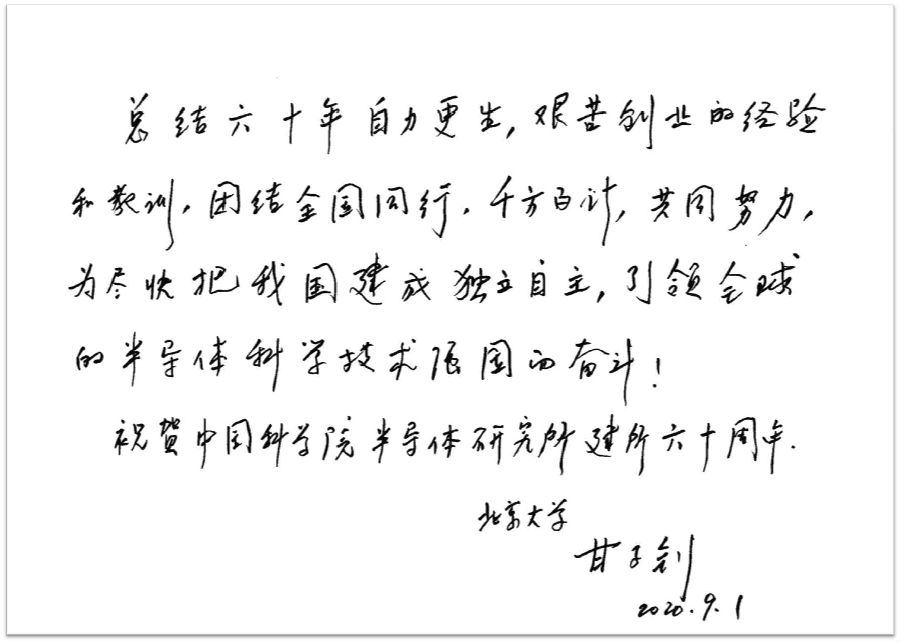 总结六十年自力更生，艰苦创业的经验
和教训，团结全国同行，千方百计，共同努力，
为尽快把我国建成独立自主，引领全球
的半导体科学技术强国而奋斗！
祝贺中国科学院半导体研究所建所六十周年.
北京大学
甘子钊
2020.9.1